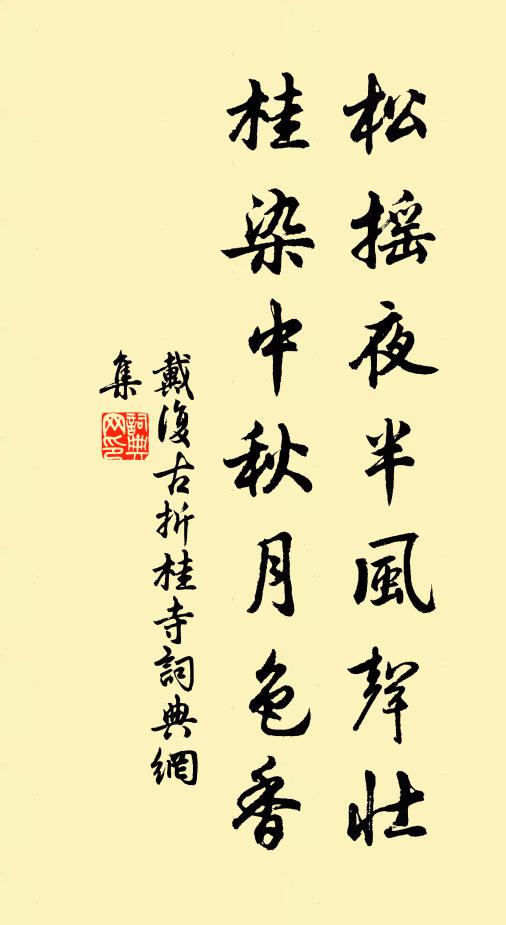 松摇夜半風聲壯
桂染中秋月色香
戴復古折桂寺詞典網
集
詞典网印